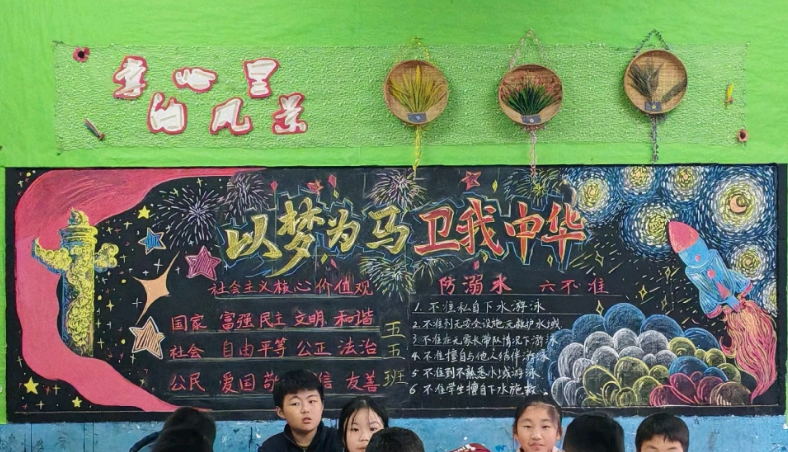 童心里
的风景
以梦为马 卫我中华
社会主义核心价值观
国家 富强 民主 文明 和谐
社会 自由 平等 公正 法治
公民 爱国 敬 信 友善
五
五
班
防溺水 六不准
1. 不准私自下水游泳
2. 不准到无安全设施 无救护水域
3. 不准在无家长带队情况下游泳
4. 不准擅自与他人结伴游泳
5 不准到不熟悉水域游泳
6 不准学生擅自下水施救